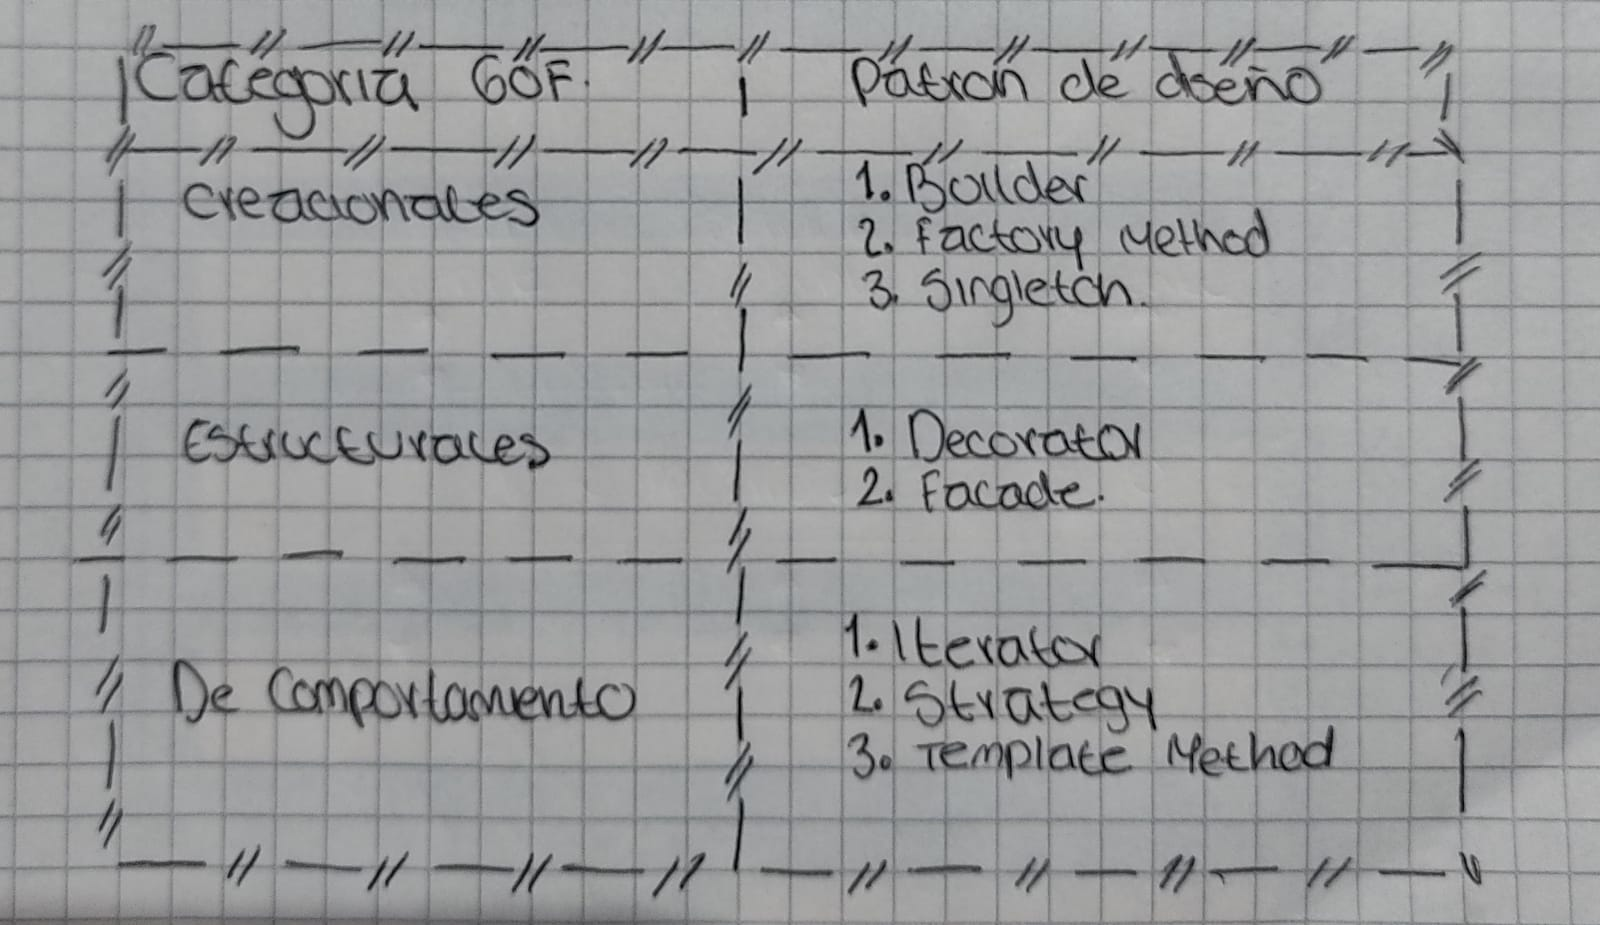 Categoria GOF.
Patron de diseño
Creacionales
1. Builder
2. Factory Method
3. Singleton.
Estructurales
1. Decorator
2. Facade.
De Comportamento
1. Iterator
2. Strategy
3. Template Method